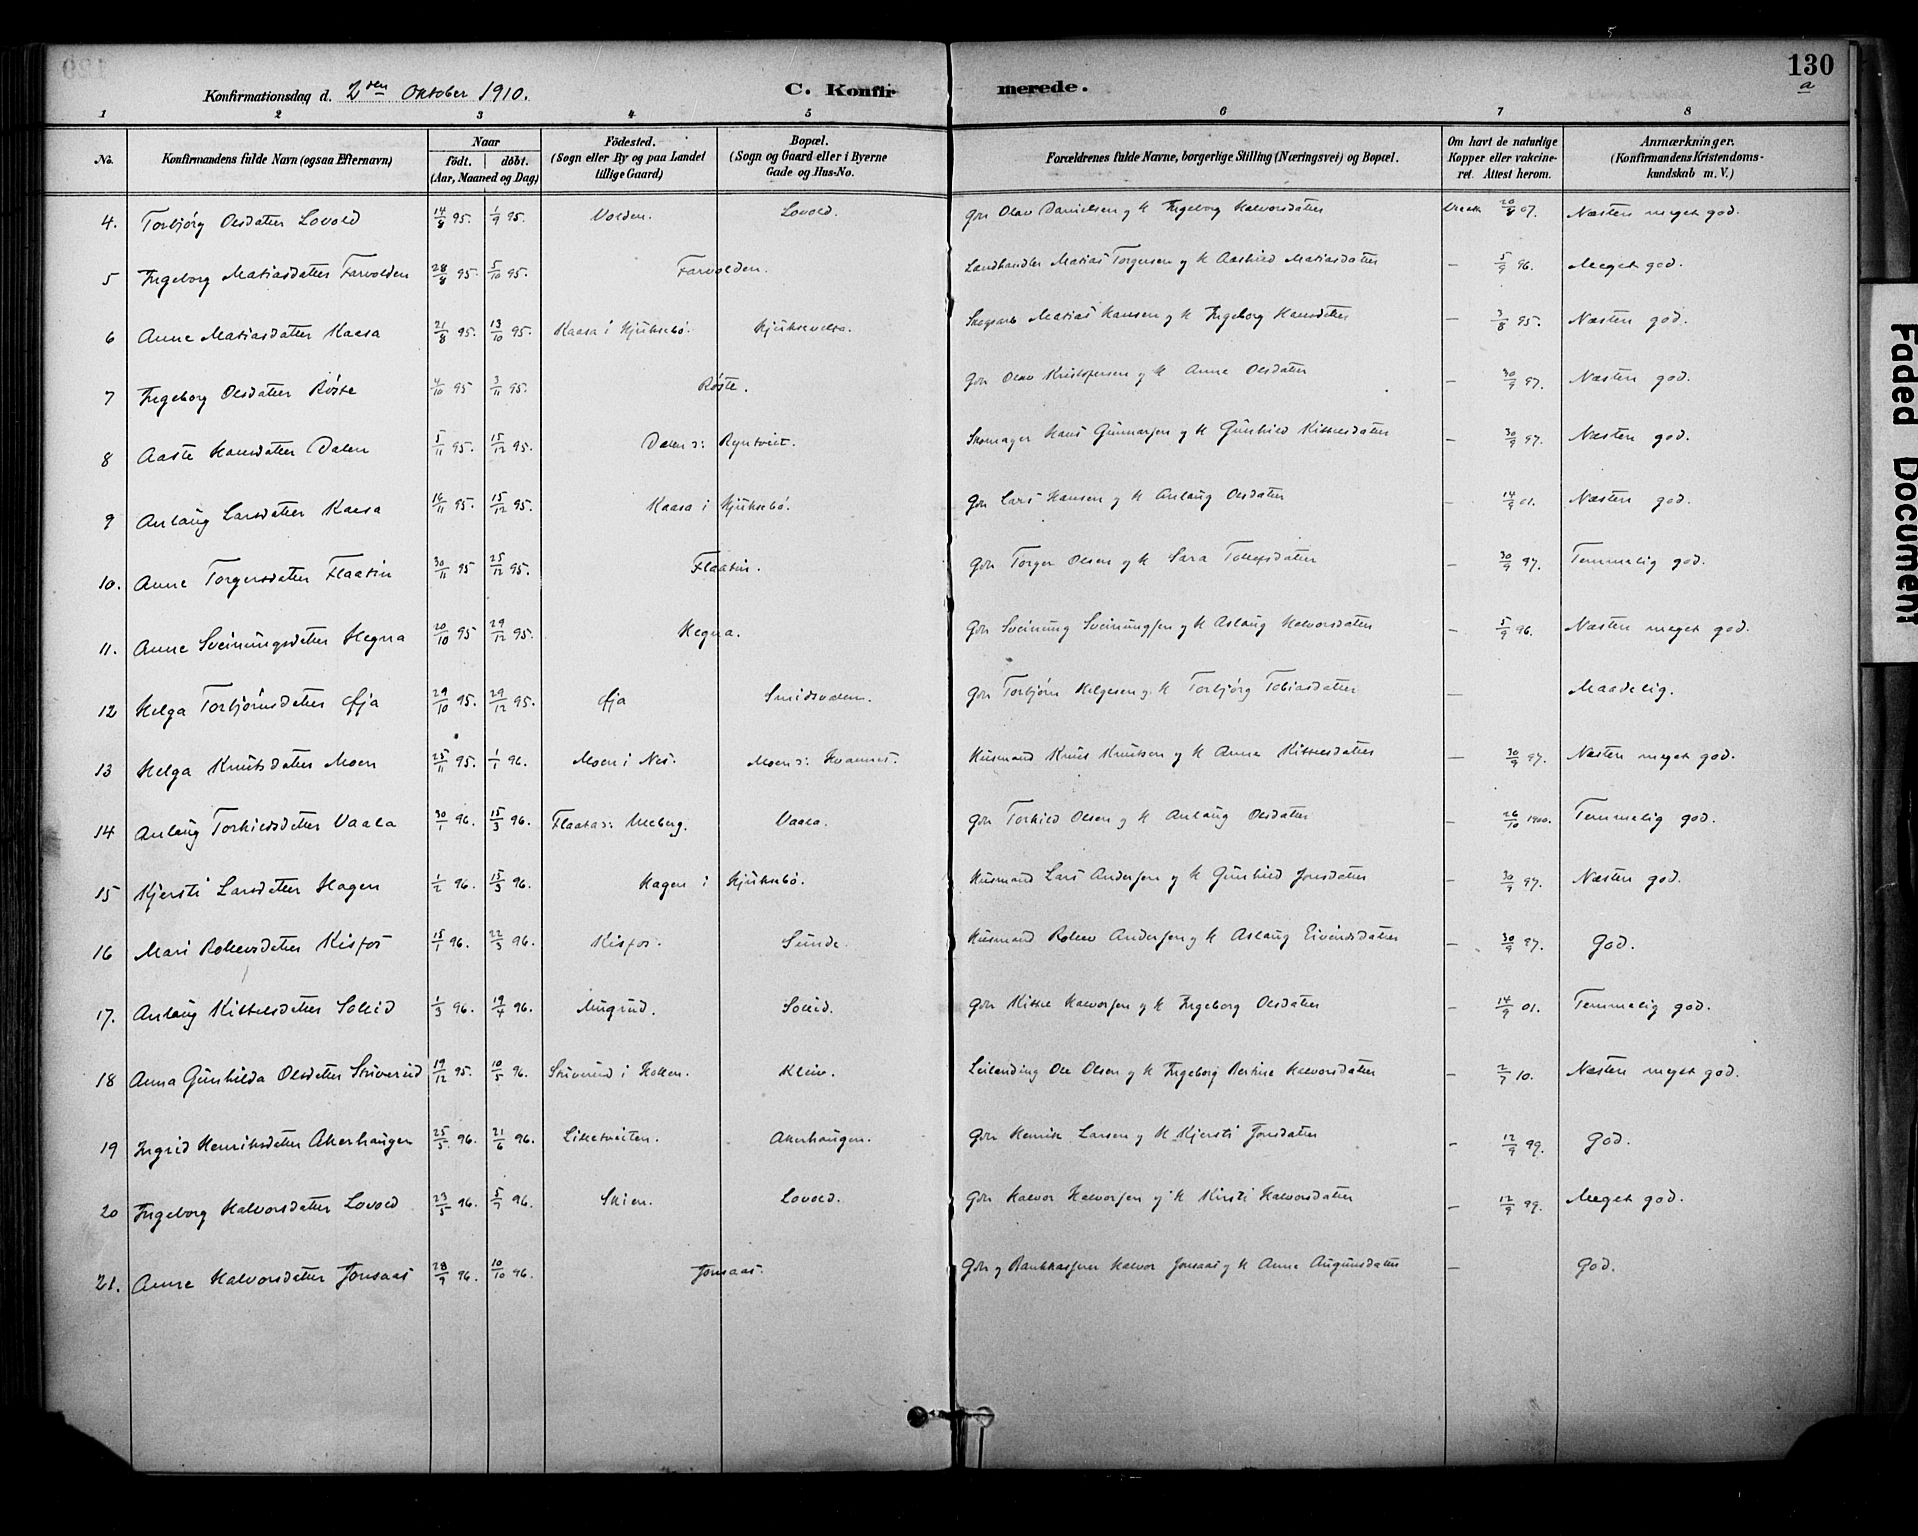 130
a
Konfirmationsdag d. 2den Oktober 1910. C. Konfirmerede.
1 2 3 4 5 6 7 8
No. Konfirmandens fulde Navn (ogsaa Efternavn) Naar födt. döbt. (Aar, Maaned og Dag) Födested. (Sogn eller By og paa Landet tillige Gaard) Bopæl. (Sogn og Gaard eller i Byerne Gade og Hus-No. Forældrenes fulde Navne, borgerlige Stilling (Næringsvei) og Bopæl. Om havt de naturlige Kopper eller vakcineret. Attest herom. Anmærkninger. (Konfirmandens Kristendomskundskab m. V.)
4. Torbjörg Olsdatter Lovold 14/8 95. 1/9 95. Volden. Lovold. Gbr Olav Danielsen og H Ingeborg Halvorsdatter 20/8 07. Næsten meget god.
5 Ingeborg Matiasdatter Farvolden 28/8 95 5/10 95. Farvolden. Landhandler Matias Torgersen og H Aashild Matiasdatter — 5/9 96. Meget god.
6 Anne Matiasdatter Kaasa 21/8 95. 13/10 95. Kaasa i Hjuksebö. Hjuksevelta. Skogsarb Matias Hansen og H Ingeborg Hansdatter — 3/8 95. Næsten god.
7 Ingeborg Olsdatter Röste 4/10 95 3/11 95. Röste. Gbr Olav Kristofersen og H Anne Olsdatter — 30/9 97. Næsten god.
8 Aaste Hansdatter Dalen 5/11 95. 15/12 95. Dalen s: Ryntveit. Skomager Hans Gunnarsen og H Gunhild Kittelsdatter — 30/9 97. Næsten god.
9 Anlaug Larsdatter Kaasa 16/11 95. 15/12 95. Kaasa i Hjuksebö. Gbr Lars Hansen og H Anlaug Olsdatter — 14/9 01. Næsten god.
10. Anne Torgersdatter Flaatin 30/11 95 25/12 95. Flaatin. Gbr Torger Olsen og H Sara Tollefsdatter — 30/9 97. Temmelig god.
11. Anne Sveinungsdatter Hegna 20/10 95 29/12 95. Hegna. Gbr Sveinung Sveinungsen og H Aslaug Halvorsdatter — 5/9 96. Næsten meget god.
12 Helga Torbjörnsdatter Øja 29/10 95. 29/12 95. Øja Gbr Torbjörn Helgesen og H Torbjörg Tobiasdatter — Maadelig.
13 Helga Knutsdatter Moen 25/11 95. 1/1 96. Moen i Nes. Moen s: Kvannes. Husmand Knut Knutsen og H Anne Kittelsdatter — 30/9 97. Næsten meget god.
14 Anlaug Torkildsdatter Vaala 30/1 96. 15/3 96. Flaata s: Uleberg. Vaala. Gbr Torkild Olsen og H Anlaug Olsdatter — 26/10 1900. Temmelig god.
15 Kjersti Larsdatter Hagen 1/2 96. 15/3 96. Hagen i Hjuksebö. Husmand Lars Andersen og H Gunhild Jonsdatter — 30/9 97. Næsten god.
16 Mari Rollevsdatter Kisfos 15/1 96. 22/3 96. Kisfos. Sunde. Husmand Rollev Andersen og H Aslaug Eivindsdatter — 30/9 97. God.
17. Anlaug Kittelsdatter Sollid 1/3 96. 19/4 96. Augrud. Sollid. Gbr Kittel Halvorsen og H Ingeborg Olsdatter — 14/9 01. Temmelig god.
18 Anna Gunhilda Olsdatter Struverud 19/12 95. 10/5 96. Struverud i Hollen. Kleiv. Leilending Ole Olsen og H Ingeborg Bertine Halvorsdatter — 2/7 10. Næsten meget god.
19 Ingrid Henriksdatter Akerhaugen 25/5 96. 21/6 96. Akerhaugen. Gbr Henrik Larsen og H Kjersti Jonsdatter — 12/9 99. God.
20 Ingeborg Halvorsdatter Lovold 23/5 96. 5/7 96. Skien. Lovold. Gbr Halvor Halvorsen og H Kirsti Halvorsdatter — 12/9 99. Meget god.
21. Anne Halvorsdatter Jonsaas 28/9 96. 10/10 96. Jonsaas. Gbr og Bankkasserer Halvor Jonsaas og H Anne Augunsdatter — God.
Faded Document